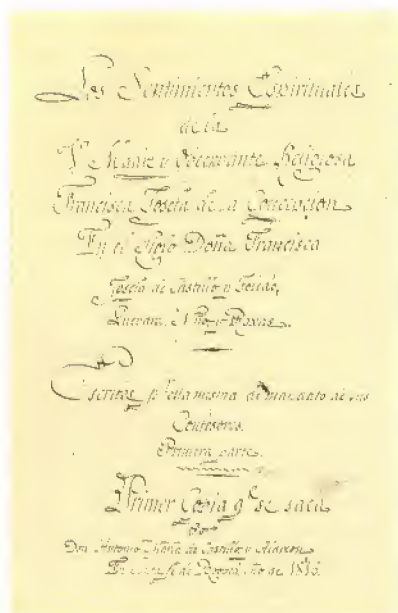 Los Sentimientos Espirituales
de la
Ve. Madre y Observante Religiosa
Francisca Josefa de la Concepcion
En el Siglo Doña Francisca
Josefa de Castillo y Toledo,
Guevara, Niño, y Roxas.
Escritos pr. ella mesma de mandato de sus
Confesores.
Primera parte.
Primer Copia qe. se saca
Por
Don Antonio María de Castillo y Alarcon
En Santa fe de Bogotá Año de 1813.